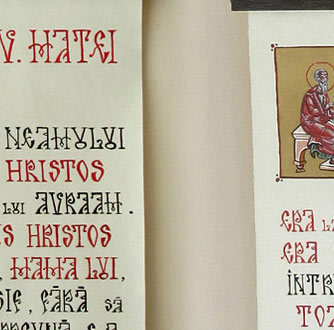 V. MATEI
NEAMULUI
HRISTOS
LUI AVRAAM.
S HRISTOS
, MAMA LUI,
SIE, FĂRĂ SĂ
ERA
ERA
INTR